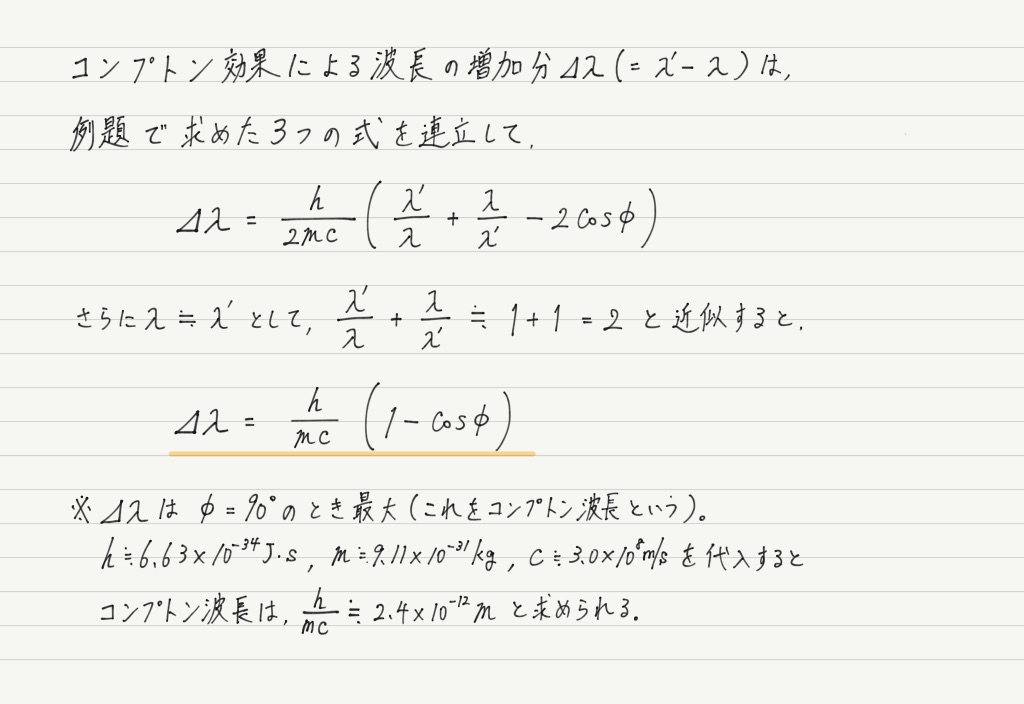 コンプトン効果による波長の増加分Δλ(=λ'-λ)は,
例題で求めた3つの式を連立して,
Δλ = h/2mc (λ'/λ + λ/λ' - 2cosφ)
さらにλ≒λ'として, λ'/λ + λ/λ' ≒ 1+1=2 と近似すると,
Δλ = h/mc (1-cosφ)
※Δλはφ=90°のとき最大(これをコンプトン波長という)。
h≒6.63×10⁻³⁴J·s, m≒9.11×10⁻³¹kg, c≒3.0×10⁸m/sを代入すると
コンプトン波長は, h/mc ≒ 2.4×10⁻¹²m と求められる.